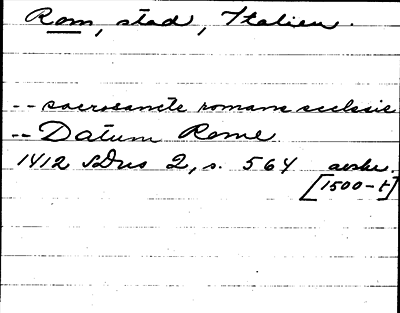 Rom, stad, Italien.
-- sacrosancte romane ecclesie
-- Datum Rome
1412 SDns 2, s. 564 avskr.
[1500-t]